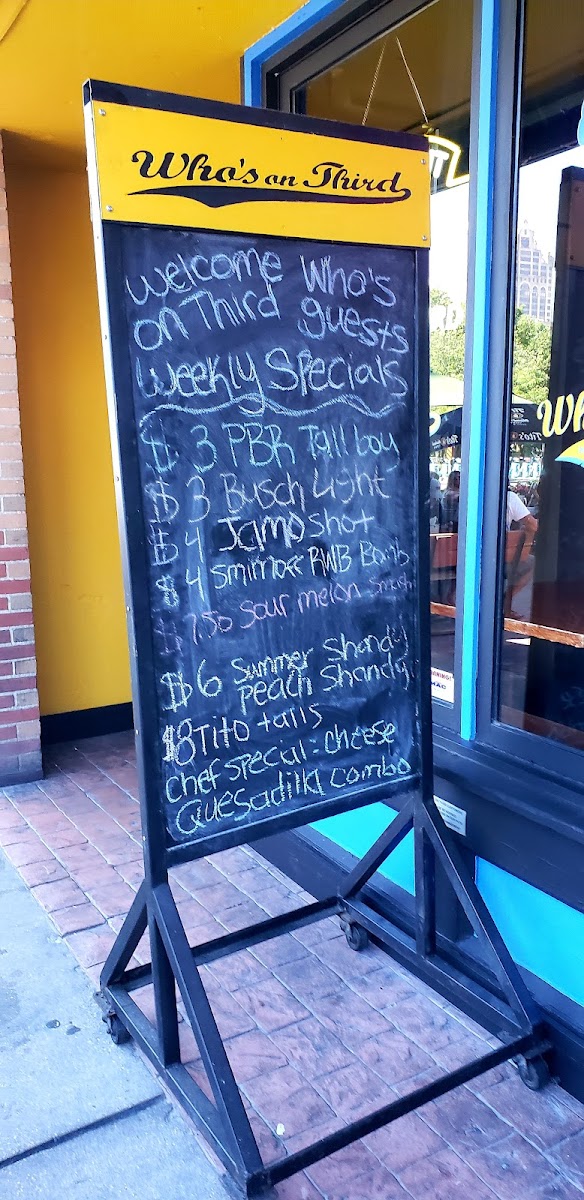 Who's on Third
Welcome Who's
on Third guests
Weekly Specials
$3 PBR Tall boy
$3 Busch Light
$4 Jamo shot
$4 Smirnoff RWB Bomb
$7.50 Sour melon Smash
$6 Summer Shandy/
peach Shandy
$8 Tito talls
Chef Special: cheese
Quesadilla combo
Tito's